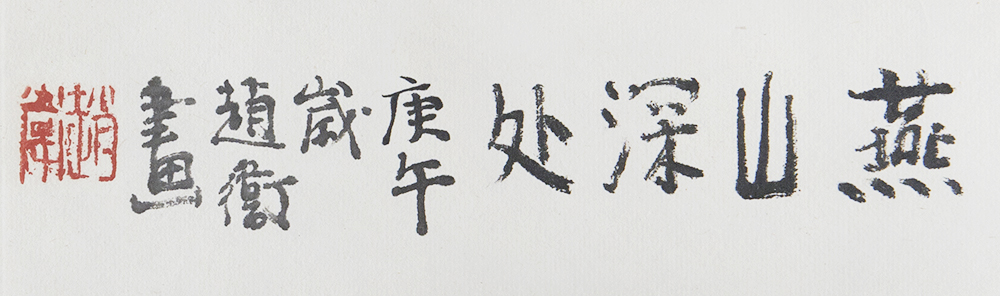 燕山深处
庚午
歲
趙衞
畫
趙衞